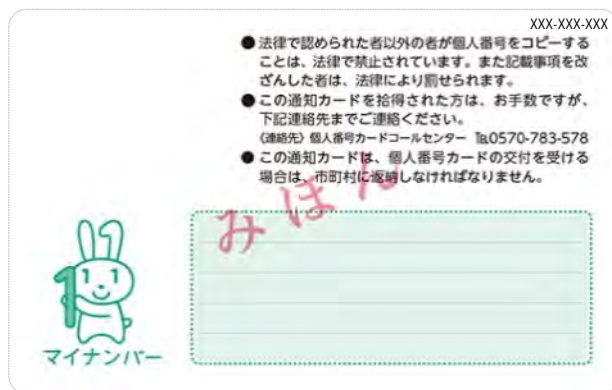 XXX-XXX-XXX
●法律で認められた者以外の者が個人番号をコピーする
ことは、法律で禁止されています。また記載事項を改
ざんした者は、法律により罰せられます。
●この通知カードを拾得された方は、お手数ですが、
下記連絡先までご連絡ください。
〈連絡先〉個人番号カードコールセンター ℡0570-783-578
●この通知カードは、個人番号カードの交付を受ける
場合は、市町村に返納しなければなりません。
みほん
1 1
1
マイナンバー